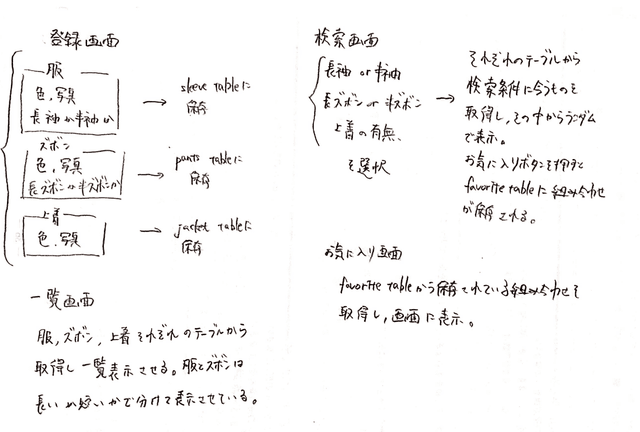 登録画面
服
色、写真
長袖か半袖か
→ sleeve tableに
保存
ズボン
色、写真
長ズボンか半ズボンか
→ pants tableに
保存
上着
色、写真
→ jacket tableに
保存
一覧画面
服、ズボン、上着それぞれのテーブルから
取得し一覧表示させる。服とズボンは
長いか短いかで分けて表示させている。
検索画面
長袖 or 半袖
長ズボン or 半ズボン
上着の有無、
を選択
→
それぞれのテーブルから
検索条件に合うものを
取得し、その中からランダム
で表示。
お気に入りボタンを押すと
favorite tableに組み合わせ
が保存される。
お気に入り画面
favorite tableから保存されている組み合わせを
取得し、画面に表示。